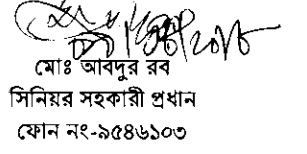 মোঃ আবদুর রব
সিনিয়র সহকারী প্রধান
ফোন নং-৯৫৪৬১০৩